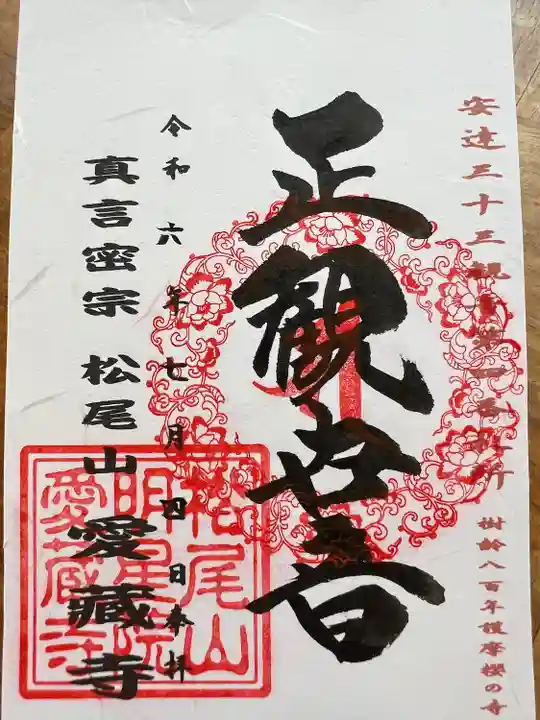 安達三十三観音第四番札所
樹齢八百年護摩櫻の寺
正観世音
令和六年七月四日奉拝
真言密宗 松尾山 愛藏寺
松尾山
明星院
愛蔵寺